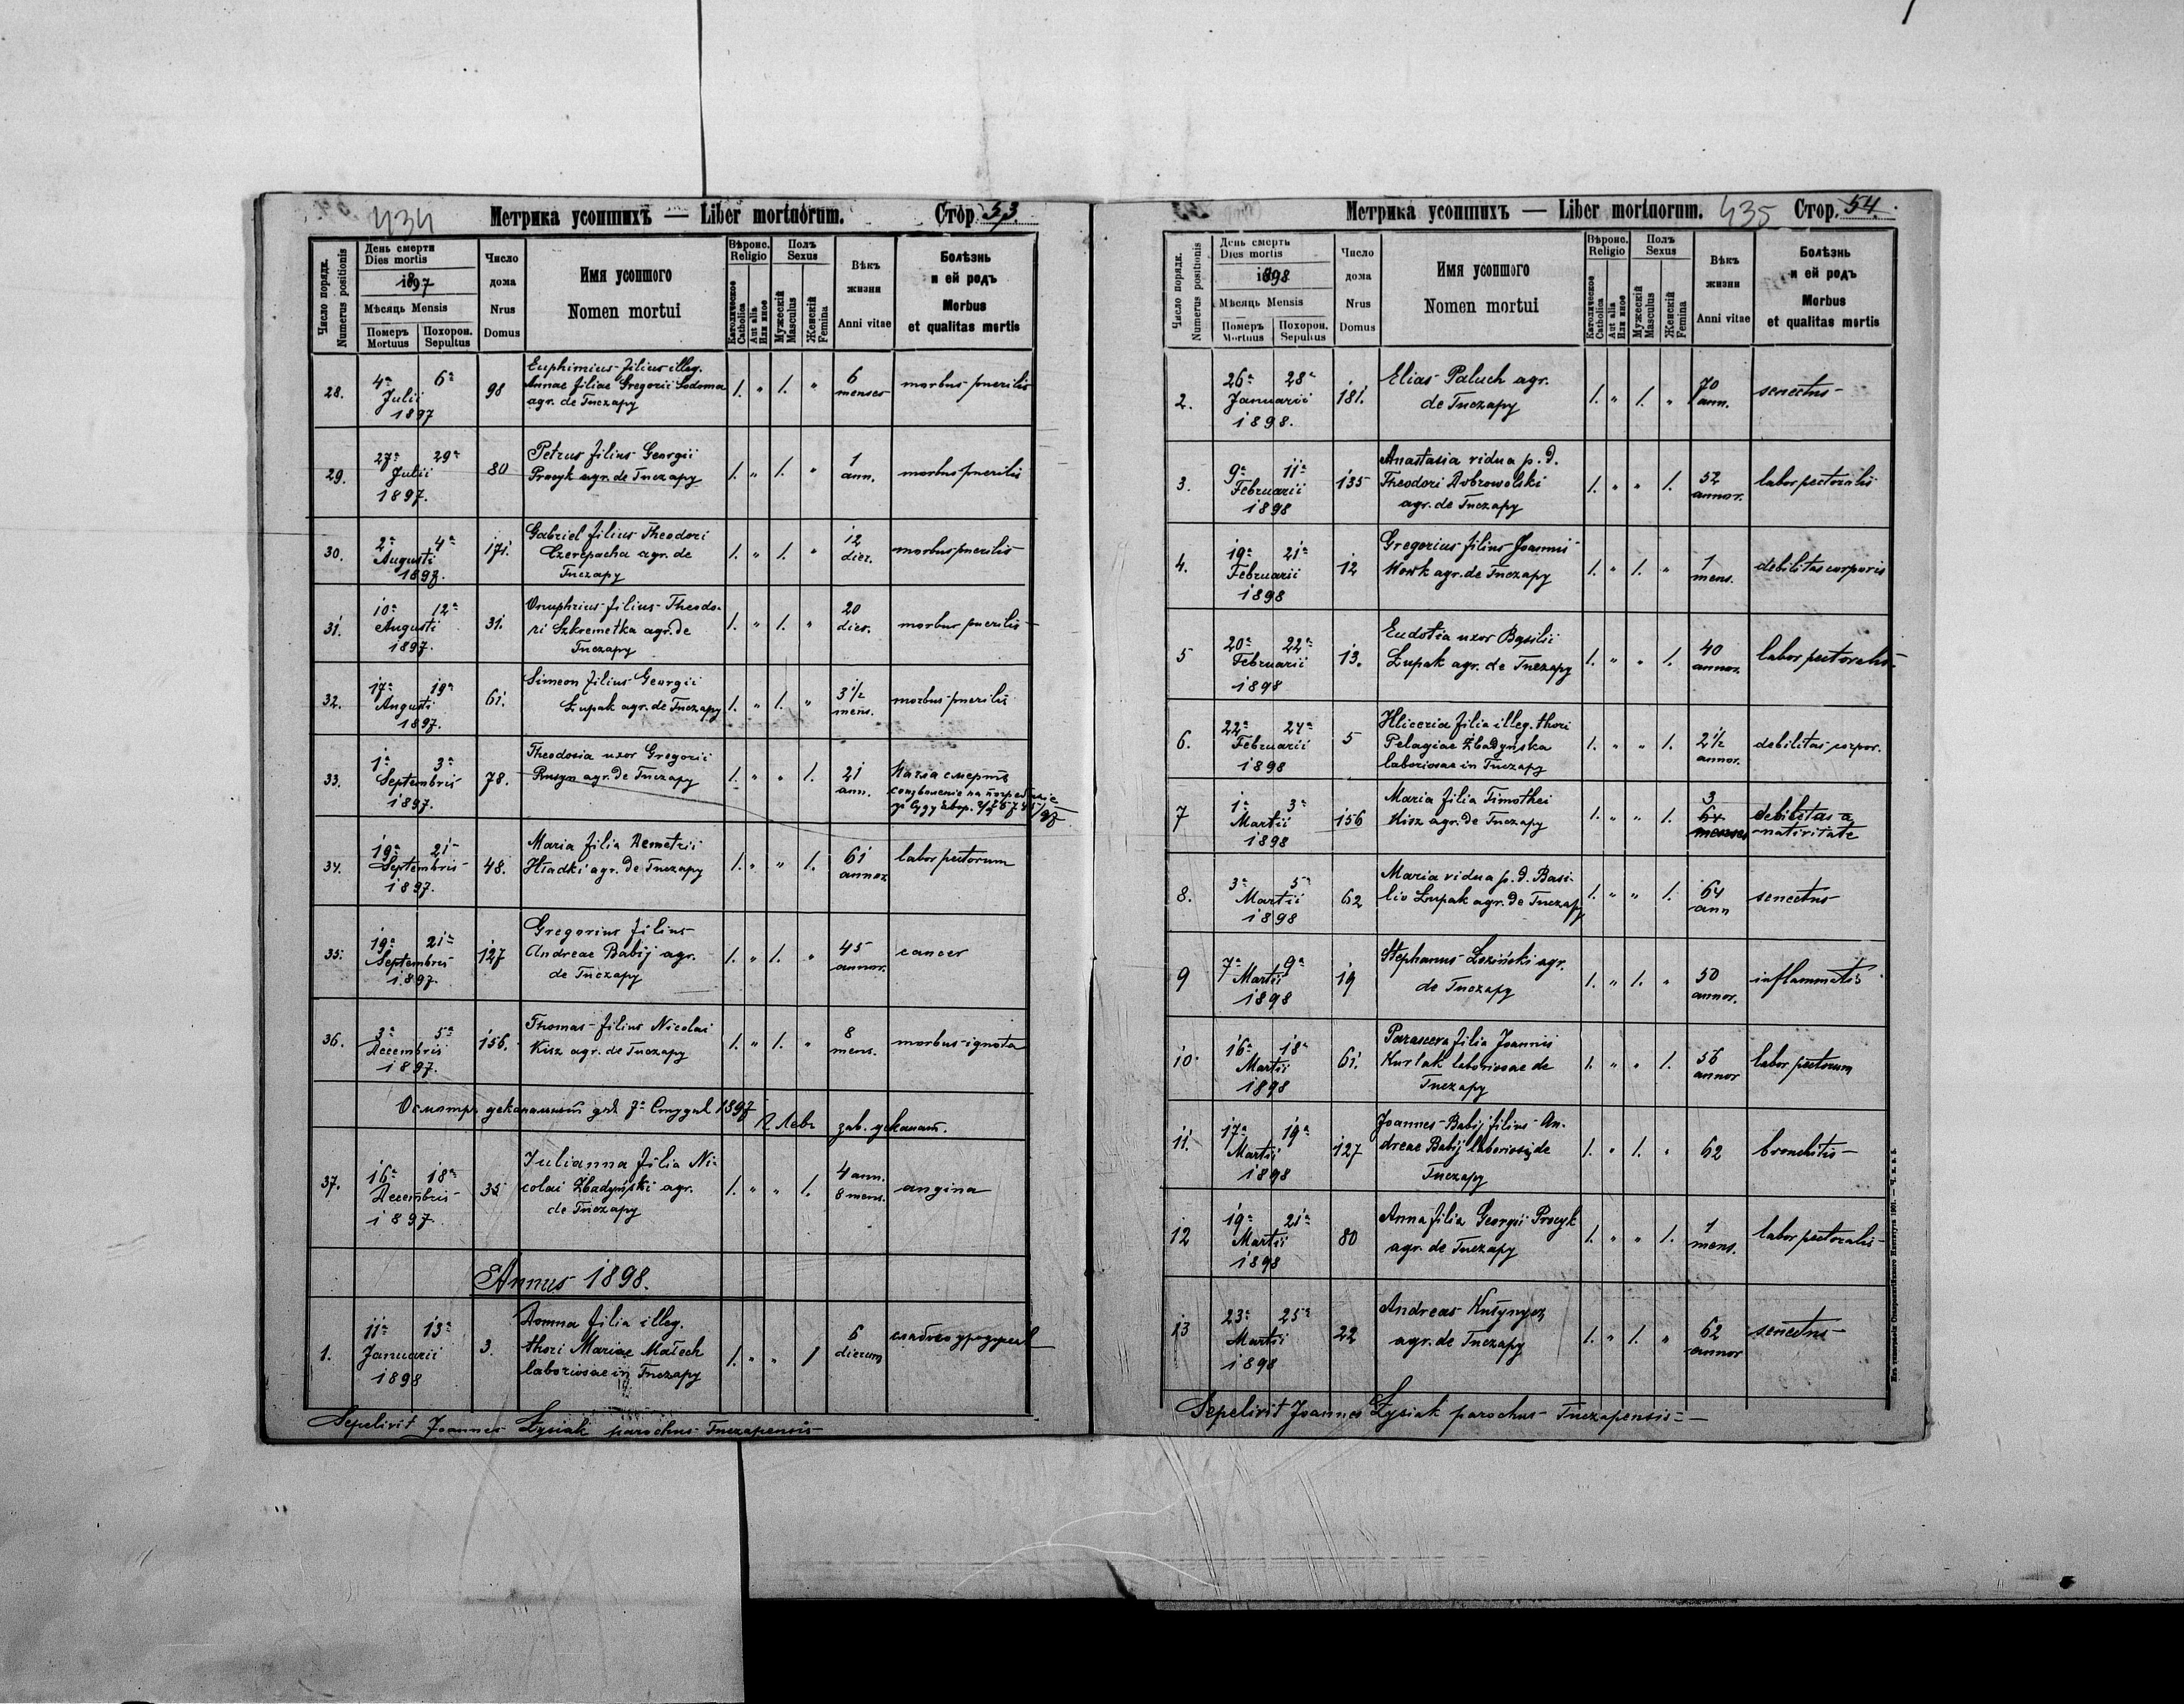 434
Метрика усопшихъ — Liber mortuorum.
Стор. 53.
Число порядк.
Numerus positionis
День смерти
Dies mortis
1897
Мѣсяць Mensis
Померъ
Mortuus
Похорон.
Sepultus
Число
дома
Nrus
Domus
Имя усопшого
Nomen mortui
Вѣроис.
Religio
Католическое
Catholica
Aut alia
Или иное
Полъ
Sexus
Мужескій
Masculus
Женскій
Femina
Вѣкъ
жизни
Anni vitae
Болѣзнь
и ей родъ
Morbus
et qualitas mortis
28. 4ª 6ª Julii 1897 98
Euphimius filius illeg.
Annae filiae Gregorii Sodoma
agr. de Tuczapy
1. " 1. " 6 menses morbus puerilis
29. 27ª 29ª Julii 1897. 80
Petrus filius Georgii
Procyk agr. de Tuczapy
1. " 1. " 1 ann. morbus puerilis
30. 2ª 4ª Augusti 1897. 171.
Gabriel filius Theodori
Czerepacha agr. de
Tuczapy
1. " 1. " 12 dier. morbus puerilis
31. 10ª 12ª Augusti 1897. 31.
Onuphrius filius Theodo-
ri Szkremetka agr. de
Tuczapy
1. " 1. " 20 dier. morbus puerilis
32. 17ª 19ª Augusti 1897. 61.
Simeon filius Georgii
Łupak agr. de Tuczapy
1. " 1. " 3 1/2 mens. morbus puerilis
33. 1ª 3ª Septembris 1897. 78.
Theodosia uxor Gregorii
Rusyn agr. de Tuczapy
1. " " 1. 21 ann.
Нагла смерть
34. 19ª 21ª Septembris 1897. 48.
Maria filia Demetrii
Hładki agr. de Tuczapy
1. " " 1. 61 annor. labor pectorum
35. 19ª 21ª Septembris 1897 127
Gregorius filius
Andreae Babij agr.
de Tuczapy
1. " 1. " 45 annor. cancer
36. 3ª 5ª Decembris 1897. 156.
Thomas filius Nicolai
Kisz agr. de Tuczapy
1. " 1. " 8 mens. morbus ignota
1897
зав. деканат.
37. 16ª 18ª Decembris 1897. 35
Iulianna filia Ni-
colai Zbadyński agr.
de Tuczapy
1. " " 1. 4 ann. 8 mens. angina
Annus 1898.
1. 11ª 13ª Januarii 1898 3.
Domna filia illeg.
thori Mariae Małech
laboriosae in Tuczapy
1. " " 1 6 dierum
Sepelivit Joannes Łysiak parochus Tuczapensis
Метрика усопшихъ — Liber mortuorum.
435
Стор. 54.
Число порядк.
Numerus positionis
День смерть
Dies mortis
1898
Мѣсяць Mensis
Померъ
Mortuus
Похорон.
Sepultus
Число
дома
Nrus
Domus
Имя усопшого
Nomen mortui
Вѣроис.
Religio
Католическое
Catholica
Aut alia
Или иное
Полъ
Sexus
Мужескій
Masculus
Женскій
Femina
Вѣкъ
жизни
Anni vitae
Болѣзнь
и ей родъ
Morbus
et qualitas mortis
2. 26ª 28ª Januarii 1898. 181.
Elias Paluch agr.
de Tuczapy
1. " 1. " 70 ann. senectus
3. 9ª 11ª Februarii 1898 135
Anastasia vidua p. d.
Theodori Dobrowolski
agr. de Tuczapy
1. " " 1. 52 annor. labor pectoralis
4. 19ª 21ª Februarii 1898 12
Gregorius filius Joannis
Wowk agr. de Tuczapy
1. " 1. " 1 mens. debilitas corporis
5 20ª 22ª Februarii 1898 13.
Eudotia uxor Basilii
Łupak agr. de Tuczapy
1. " " 1. 40 annor. labor pectoralis
6. 22ª 24ª Februarii 1898 5
Hliceria filia illeg. thori
Pelagiae Zbadyńska
laboriosae in Tuczapy
1. " " 1. 2 1/2 annor. debilitas corpor.
7 1ª 3ª Martii 1898 156
Maria filia Timothei
Kisz agr. de Tuczapy
1. " " 1. 3 64 menses
debilitas a
nativitate
8. 3ª 5ª Martii 1898 62
Maria vidua p. d. Basi-
lio Łupak agr. de Tuczapy
1. " " 1. 64 ann senectus
9 7ª 9ª Martii 1898 19
Stephanus Łoziński agr.
de Tuczapy
1. " 1. " 50 annor. inflammatio
10 16ª 18ª Martii 1898 61.
Parasceva filia Joannis
Kurlak laboriosae de
Tuczapy
1. " " 1. 56 annor labor pectorum
11. 17ª 19ª Martii 1898 127
Joannes Babij filius An-
dreae Babij laboriosi de
Tuczapy
1. " 1. " 62 bronchitis
12 19ª 21ª Martii 1898 80
Anna filia Georgii Procyk
agr. de Tuczapy
1. " " 1. 1 mens. labor pectoralis
13 23ª 25ª Martii 1898 22
Andreas
agr. de Tuczapy
1. " 1. " 62 annor senectus
Sepelivit Joannes Łysiak parochus Tuczapensis